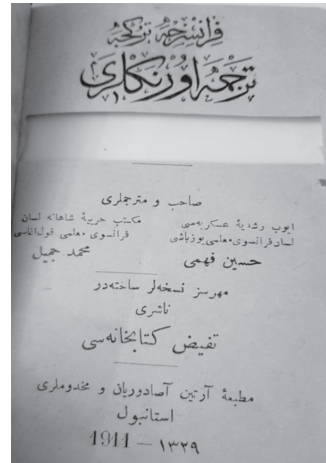 فرانسزجه تركجه
ترجمه اورنكلرى
صاحب و مترجملرى
ايوب رشديهٔ عسكريه‌سى
لسان فرانسوى معلمى يوزباشى
حسين فهمى
مكتب حربيهٔ شاهانه لسان
فرانسوى معلمى قول اغاسى
محمد جميل
مهرسز نسخه‌لر ساخته‌در
ناشرى
تفيض كتابخانه‌سى
مطبعهٔ آرتين آصادوريان و مخدوملرى
استانبول
١٣٢٩ — 1911